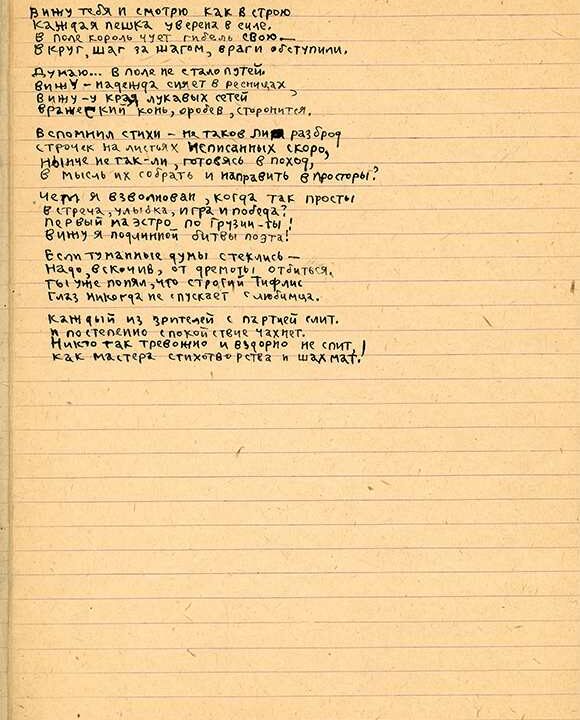 Вижу тебя и смотрю как в строю
Каждая пешка уверена в силе.
В поле король чует гибель свою—
Вкруг, шаг за шагом, враги обступили.
Думаю... В поле не стало путей.
Вижу – надежда сияет в ресницах,
Вижу – у края лукавых сетей
Вражеский конь, оробев, сторонится.
Вспомнил стихи – не таков ли разброд
Строчек на листьях исписанных скоро,
Нынче не так-ли, готовясь в поход,
В мысль их собрать и направить в просторы?
Чем я взволнован, когда так просты
Встреча, улыбка, игра и победа?
Первый маэстро по Грузии – ты!
Вижу я подлинной битвы поэта!
Если туманные думы стеклись –
Надо, вскочив, от дремоты отбиться.
Ты уже понял, что строгий Тифлис
Глаз никогда не спускает с любимца.
Каждый из зрителей с партией слит.
И постепенно спокойствие чахнет.
Никто так тревожно и вздорно не спит,
Как мастера стихотворства и шахмат!